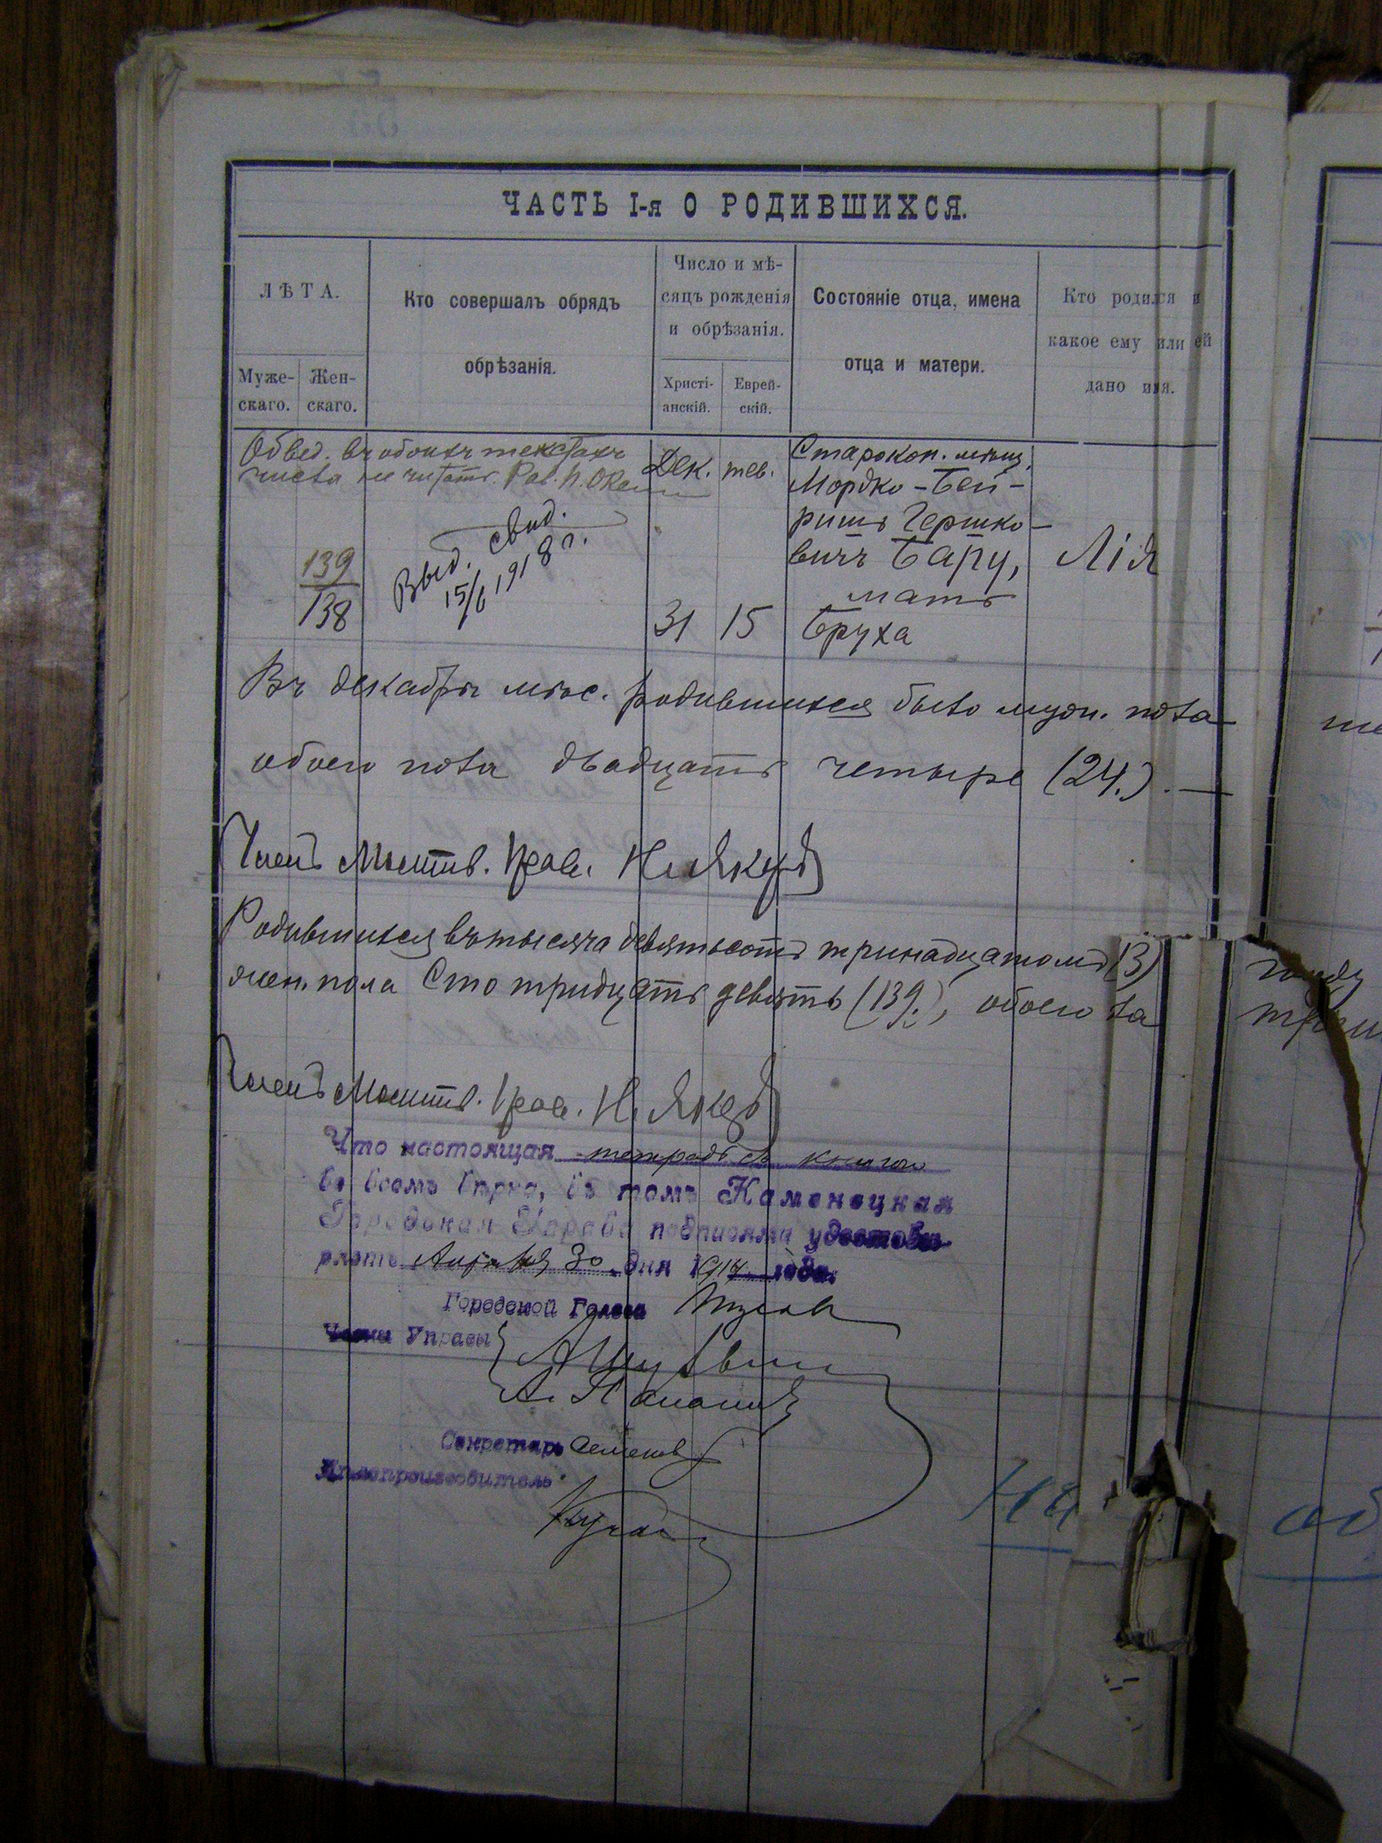 ЧАСТЬ I-я О РОДИВШИХСЯ.
ЛѢТА.
Муже-
скаго.
Жен-
скаго.
Кто совершалъ обрядъ
обрѣзанія.
Число и мѣ-
сяцъ рожденія
и обрѣзанія.
Христі-
анскій.
Еврей-
скій.
Состояніе отца, имена
отца и матери.
Кто родился и
какое ему или ей
дано имя.
Обвед. въ обоихъ текстахъ
числа не читать. Рав.
Выд. свид.
15/6 1918 г.
139
138
Дек.
31
тев.
15
Старокон. мѣщ.
Мордко-Бей-
ришъ Гершко-
вичъ Бару,
мать
Бруха
Лія
Въ декабрѣ мѣс. родившихся было муж. пола
обоего пола двадцать четыре (24.).
Членъ Молитв. Прав. Н. Якуб
Родившихся въ тысяча девятьсотъ тринадцатомъ (13)
жен. пола Сто тридцать девять (139.), обоего
Членъ Молитв. Прав. Н. Якуб
Что настоящая тетрадь съ книгою
во всемъ вѣрна, въ томъ Каменецкая
Городская Управа подписями удостовѣ-
ряетъ Апрѣля 30 дня 1914 года.
Городской Голова
Члены Управы
Секретарь Семенов
Дѣлопроизводитель
На
об